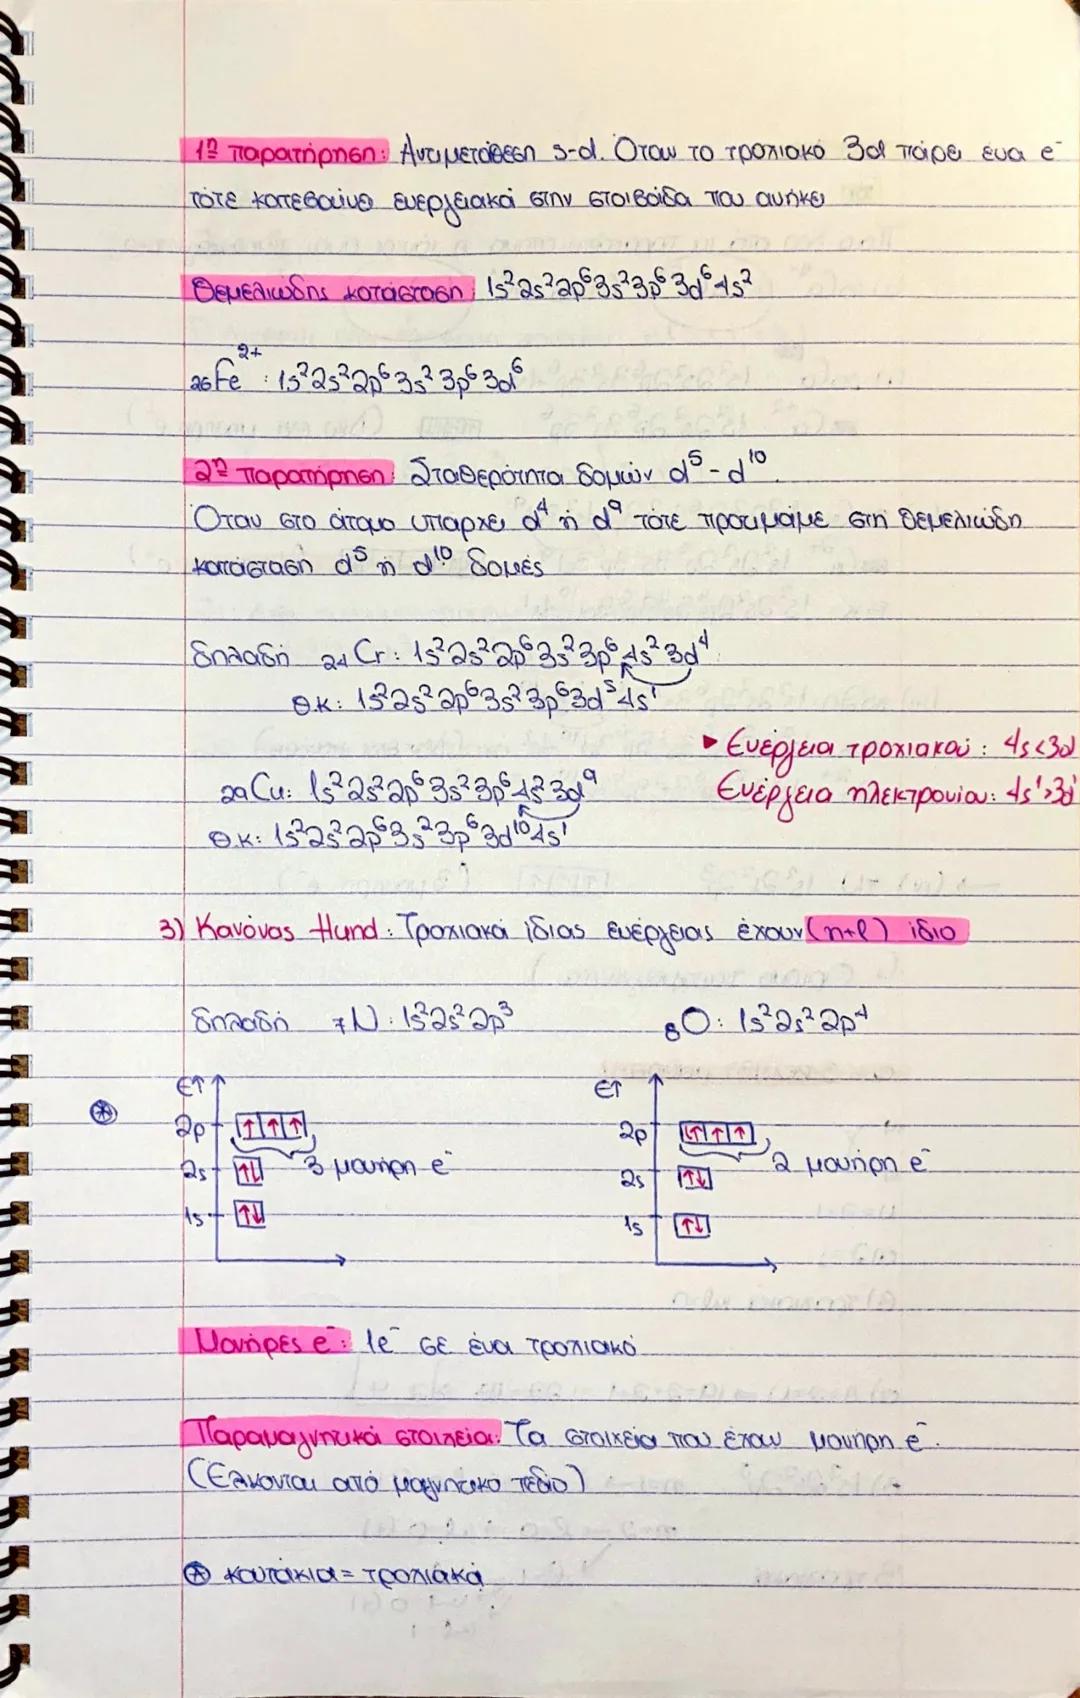 1η παρατήρηση: Αντιμετάθεση s-d. Όταν το τροχιακό 3d πάρει ένα e⁻
τότε κατεβαίνει ενεργειακά στην στοιβάδα που ανήκει
Θεμελιώδης κατάσταση: 1s²2s²2p⁶3s²3p⁶3d⁶4s²
₂₆Fe²⁺: 1s²2s²2p⁶3s²3p⁶3d⁶
2η παρατήρηση: Σταθερότητα δομών d⁵-d¹⁰.
Όταν στο άτομο υπάρχει d⁴ ή d⁹ τότε προτιμάμε στη θεμελιώδη
κατάσταση d⁵ ή d¹⁰ δομές
δηλαδή ₂₄Cr: 1s²2s²2p⁶3s²3p⁶4s²3d⁴
Θ.Κ: 1s²2s²2p⁶3s²3p⁶3d⁵4s¹
▸ Ενέργεια τροχιακού: 4s<3d
₂₉Cu: 1s²2s²2p⁶3s²3p⁶4s²3d⁹
Ενέργεια ηλεκτρονίου: 4s¹>3d¹
Θ.Κ: 1s²2s²2p⁶3s²3p⁶3d¹⁰4s¹
3) Κανόνας Hund: Τροχιακά ίδιας ενέργειας έχουν (n+l) ίδιο
δηλαδή ₇N: 1s²2s²2p³ ₈O: 1s²2s²2p⁴
Ε↑
2p ↑ ↑ ↑
2s ↑↓ 3 μονήρη e⁻
1s ↑↓
Ε↑
2p ↑↓ ↑ ↑
2s ↑↓ 2 μονήρη e⁻
1s ↑↓
Μονήρες e⁻: 1e⁻ σε ένα τροχιακό
Παραμαγνητικά στοιχεία: Τα στοιχεία που έχουν μονήρη e⁻.
(Έλκονται από μαγνητικό πεδίο)
⊛ κουτάκια = τροχιακά